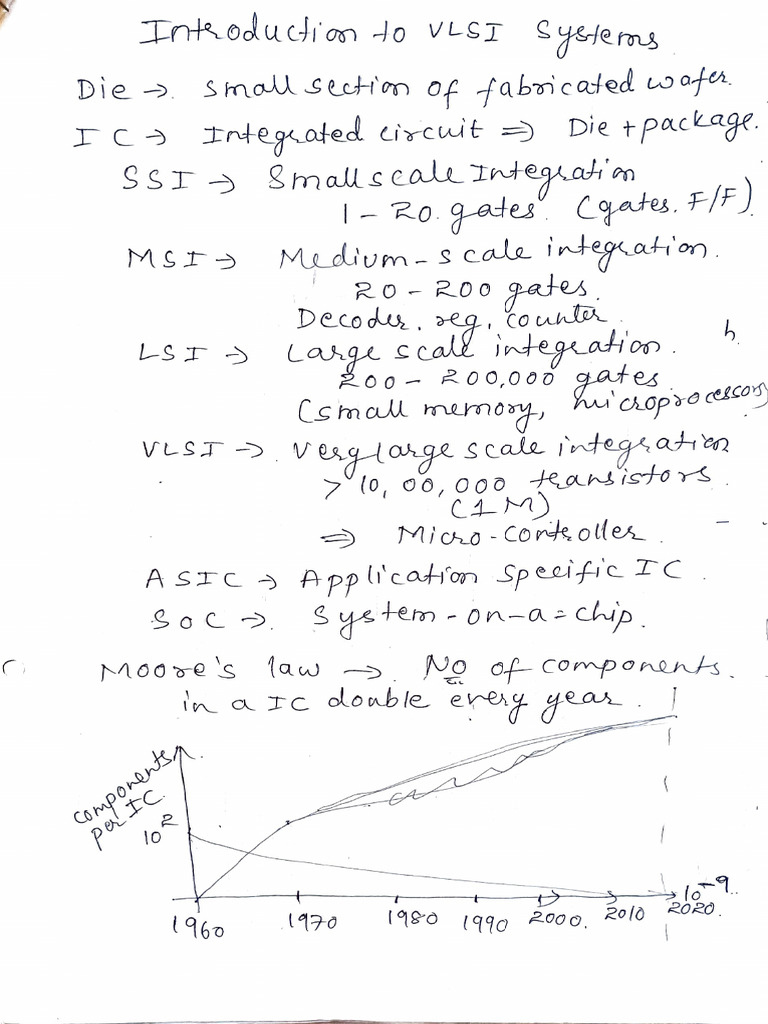 Introduction to VLSI Systems
Die → small section of fabricated wafer.
IC → Integrated circuit ⇒ Die + package.
SSI → Small scale Integration
1 - 20 gates. (gates. F/F)
MSI → Medium - scale integration.
20 - 200 gates.
Decoder, reg, counter
LSI → Large scale integration. h
200 - 200,000 gates
(small memory, microprocessors)
VLSI → Very large scale integration
> 10,00,000 transistors.
(1M)
⇒ Micro-controller.
ASIC → Application Specific IC.
SoC → System-on-a=chip.
Moore's law → No of components.
in a IC double every year.
components
per IC
10²
10⁻⁹
1960 1970 1980 1990 2000. 2010 2020.